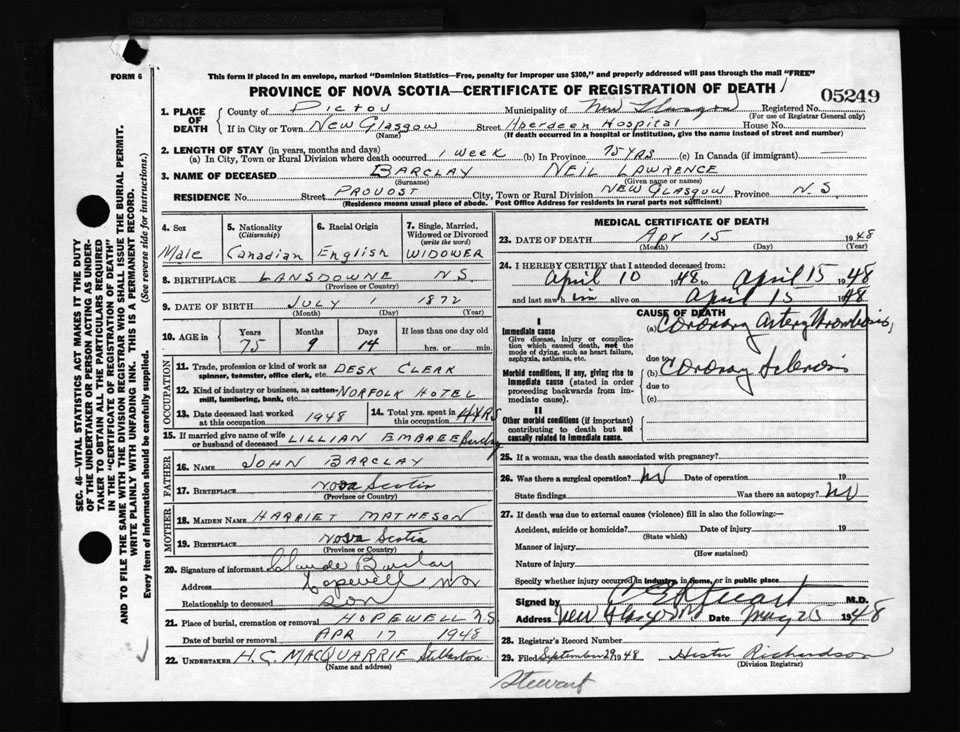 FORM 6
This form if placed in an envelope, marked "Dominion Statistics—Free, penalty for improper use $300," and properly addressed will pass through the mail "FREE"
PROVINCE OF NOVA SCOTIA—CERTIFICATE OF REGISTRATION OF DEATH
05249
1. PLACE OF DEATH
County of Pictou Municipality of New Glasgow Registered No.
(For use of Registrar General only)
If in City or Town New Glasgow Street Aberdeen Hospital House No.
(Name) (If death occurred in a hospital or institution, give the name instead of street and number)
2. LENGTH OF STAY (in years, months and days)
(a) In City, Town or Rural Division where death occurred 1 week (b) In Province 75 YRS (c) In Canada (if immigrant) —
3. NAME OF DECEASED BARCLAY NEIL LAWRENCE
(Surname) (Given name or names)
RESIDENCE No. Street PROVOST City, Town or Rural Division NEW GLASGOW Province N.S
(Residence means usual place of abode. Post Office Address for residents in rural parts not sufficient)
4. Sex
Male
5. Nationality
(Citizenship)
Canadian
6. Racial Origin
English
7. Single, Married, Widowed or Divorced
(write the word)
WIDOWER
8. BIRTHPLACE LANSDOWNE N.S.
(Province or Country)
9. DATE OF BIRTH JULY 1 1872
(Month) (Day) (Year)
10. AGE in
Years Months Days If less than one day old
75 9 14 hrs. or min.
OCCUPATION
11. Trade, profession or kind of work as spinner, teamster, office clerk, etc. DESK CLERK
12. Kind of industry or business, as cotton-mill, lumbering, bank, etc. NORFOLK HOTEL
13. Date deceased last worked at this occupation 1948
14. Total yrs. spent in this occupation 44 YRS
15. If married give name of wife or husband of deceased LILLIAN EMBREE Barclay
FATHER
16. NAME JOHN BARCLAY
17. BIRTHPLACE Nova Scotia
(Province or Country)
MOTHER
18. MAIDEN NAME HARRIET MATHESON
19. BIRTHPLACE Nova Scotia
(Province or Country)
20. Signature of informant Claude Barclay
Address Hopewell
Relationship to deceased son
21. Place of burial, cremation or removal HOPEWELL N.S
Date of burial or removal APR 17 1948
22. UNDERTAKER H.C. MACQUARRIE Stellarton
(Name and address)
MEDICAL CERTIFICATE OF DEATH
23. DATE OF DEATH Apr 15 1948
(Month) (Day) (Year)
24. I HEREBY CERTIFY that I attended deceased from:
April 10 1948 to April 15 1948
and last saw him alive on April 15 1948
CAUSE OF DEATH
I
Immediate cause
Give disease, injury or complication which caused death, not the mode of dying, such as heart failure, asphyxia, asthenia, etc.
(a) Coronary artery thrombosis,
due to
Morbid conditions, if any, giving rise to immediate cause (stated in order proceeding backwards from immediate cause).
(b) Coronary Sclerosis
due to
(c)
II
Other morbid conditions (if important) contributing to death but not causally related to immediate cause.
25. If a woman, was the death associated with pregnancy?
26. Was there a surgical operation? no Date of operation 19
State findings Was there an autopsy? no
27. If death was due to external causes (violence) fill in also the following:—
Accident, suicide or homicide? Date of injury 19
(State which)
Manner of injury
(How sustained)
Nature of injury
Specify whether injury occurred in industry, in home, or in public place
Signed by M.D.
Address New Glasgow Date May 20 1948
28. Registrar's Record Number
29. Filed September 29 1948 Hester Richardson
(Division Registrar)
Stewart
SEC. 46—VITAL STATISTICS ACT MAKES IT THE DUTY
OF THE UNDERTAKER OR PERSON ACTING AS UNDER-
TAKER TO OBTAIN ALL THE PARTICULARS REQUIRED
IN THE "CERTIFICATE OF REGISTRATION OF DEATH"
AND TO FILE THE SAME WITH THE DIVISION REGISTRAR WHO SHALL ISSUE THE BURIAL PERMIT.
WRITE PLAINLY WITH UNFADING INK. THIS IS A PERMANENT RECORD.
Every item of information should be carefully supplied. (See reverse side for instructions.)